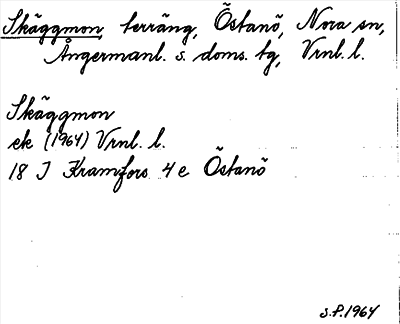 Skäggmon, terräng, Östanö, Nora sn,
Ångermanl. s. doms. tg, Vrnl. l.
Skäggmon
ek (1964) Vrnl. l.
18 I Kramfors 4 e Östanö
S.P. 1964